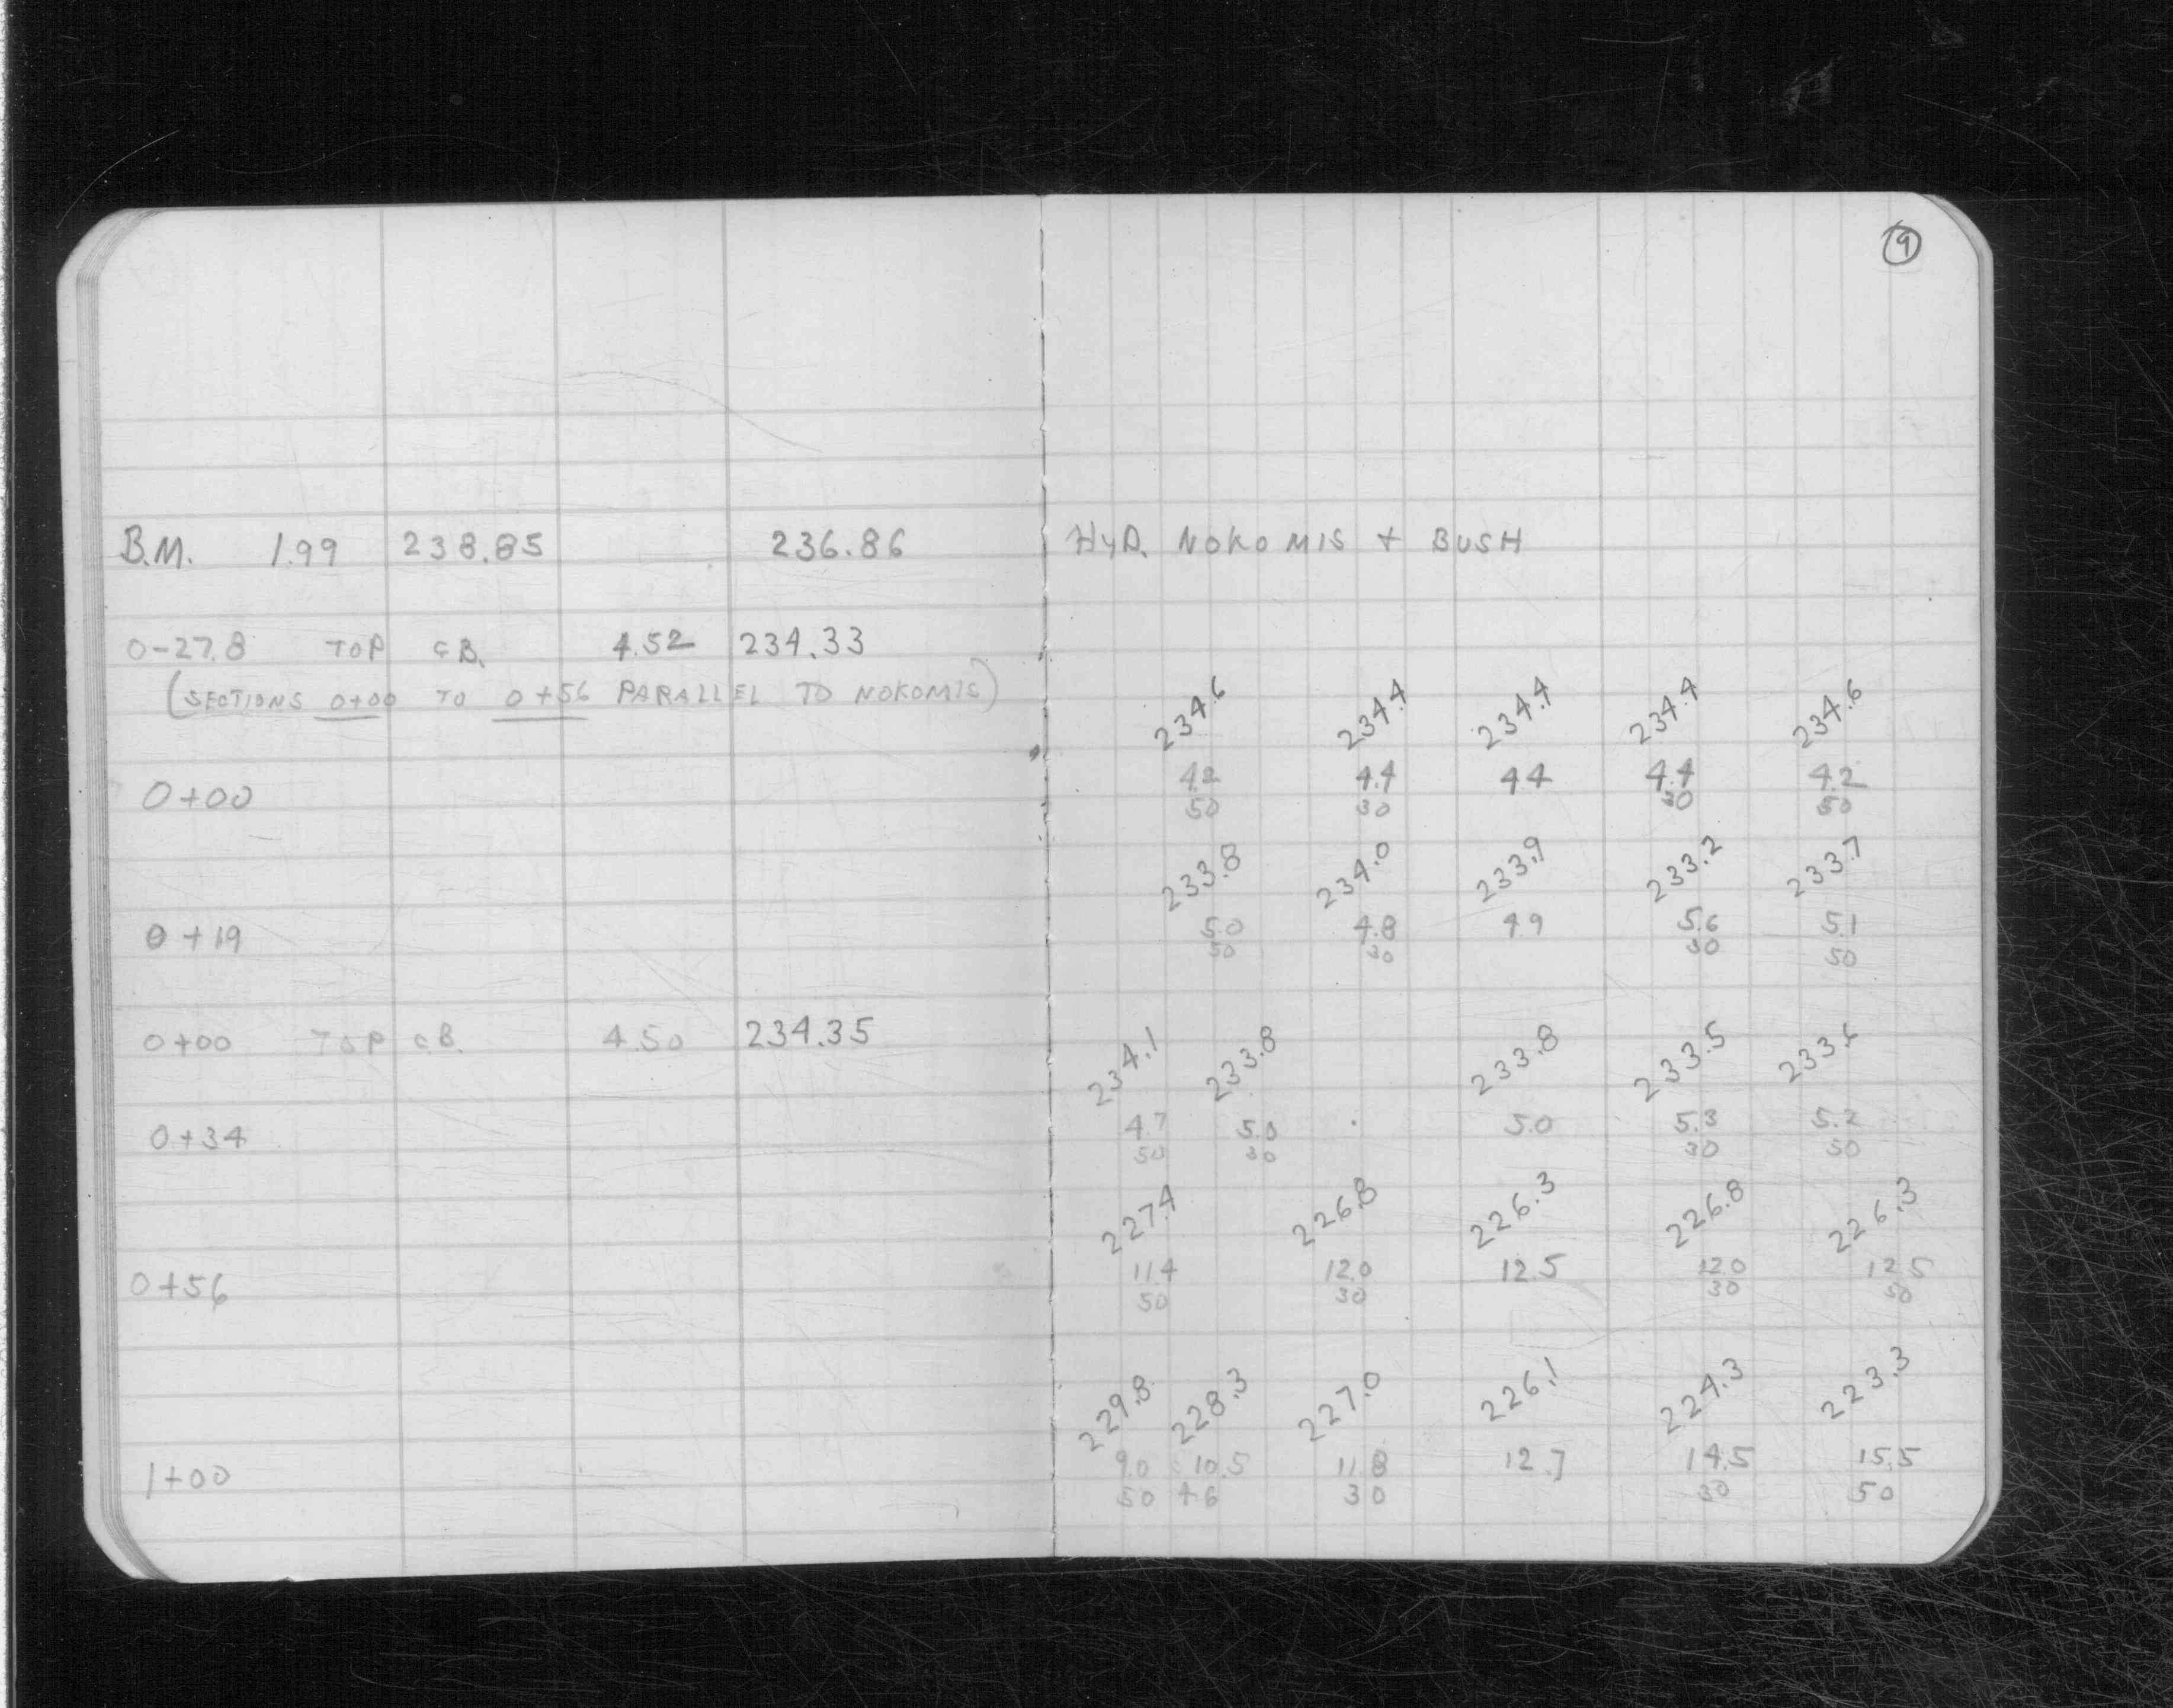 9
B.M. 1.99 238.85 236.86 HYD. NOKOMIS + BUSH
0-27.8 TOP C.B. 4.52 234.33
(SECTIONS 0+00 TO 0+56 PARALLEL TO NOKOMIS)
234.6 234.4 234.4 234.4 234.6
0+00 4.2 4.4 4.4 4.4 4.2
50 30 30 50
233.8 234.0 233.9 233.2 233.7
0+19 5.0 4.8 4.9 5.6 5.1
50 30 30 50
0+00 TOP C.B. 4.50 234.35
234.1 233.8 233.8 233.5 233.6
0+34 4.7 5.0 5.0 5.3 5.2
50 30 30 50
227.4 226.8 226.3 226.8 226.3
0+56 11.4 12.0 12.5 12.0 12.5
50 30 30 50
229.8 228.3 227.0 226.1 224.3 223.3
1+00 9.0 10.5 11.8 12.7 14.5 15.5
50 46 30 30 50